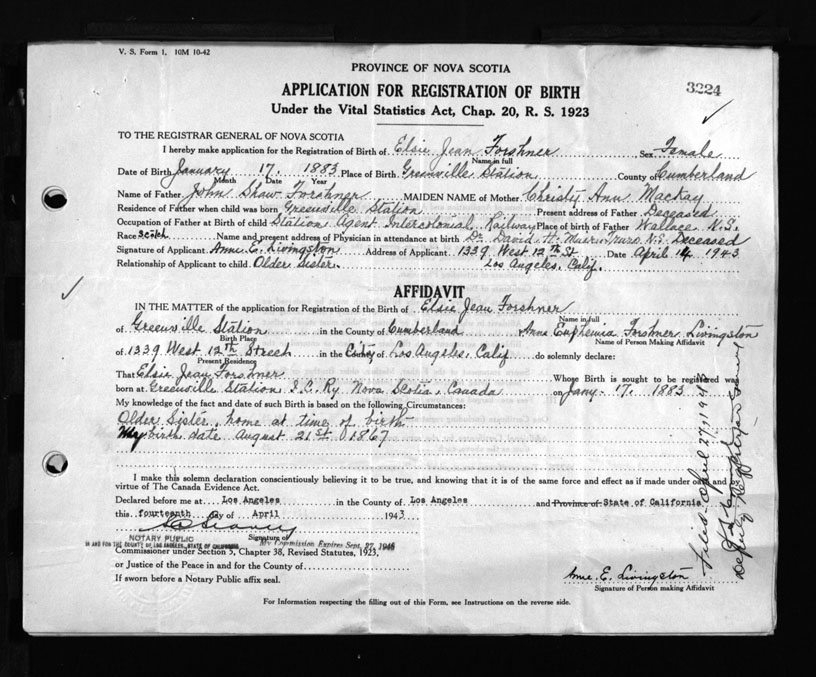 V. S. Form 1. 10M 10-42
PROVINCE OF NOVA SCOTIA
3224
APPLICATION FOR REGISTRATION OF BIRTH
Under the Vital Statistics Act, Chap. 20, R. S. 1923
TO THE REGISTRAR GENERAL OF NOVA SCOTIA
I hereby make application for the Registration of Birth of Elsie Jean Forshner Sex Female
Name in full
Date of Birth January 17. 1883 Place of Birth Greenville Station County of Cumberland
Month Date Year
Name of Father John Shaw Forshner MAIDEN NAME of Mother Christy Ann Mackay
Residence of Father when child was born Greenville Station Present address of Father Deceased
Occupation of Father at Birth of child Station Agent Intercolonial Railway Place of birth of Father Wallace N.S.
Race Scotch Name and present address of Physician in attendance at birth Dr. David H. Muir, Truro N.S. Deceased
Signature of Applicant Anne E. Livingston Address of Applicant 1339 West 12th St. Date April 14 1943
Relationship of Applicant to child Older Sister. Los Angeles. Calif.
AFFIDAVIT
IN THE MATTER of the application for Registration of the Birth of Elsie Jean Forshner
Name in full
of Greenville Station in the County of Cumberland Anne Euphemia Forshner Livingston
Birth Place Name of Person Making Affidavit
of 1339 West 12th Street in the City of Los Angeles, Calif do solemnly declare:
Present Residence
That Elsie Jean Forshner Whose Birth is sought to be registered was
born at Greenville Station I.C. Ry Nova Scotia, Canada on Jany. 17. 1883
My knowledge of the fact and date of such Birth is based on the following Circumstances:
Older Sister, home at time of birth
My birth date August 21st 1867
I make this solemn declaration conscientiously believing it to be true, and knowing that it is of the same force and effect as if made under oath and by
virtue of The Canada Evidence Act.
Declared before me at Los Angeles in the County of Los Angeles and Province of State of California
this fourteenth day of April 1943
Signature of
NOTARY PUBLIC
IN AND FOR THE COUNTY OF LOS ANGELES, STATE OF CALIFORNIA
My Commission Expires Sept. 27, 1946
Commissioner under Section 5, Chapter 38, Revised Statutes, 1923,
or Justice of the Peace in and for the County of
If sworn before a Notary Public affix seal.
Anne. E. Livingston
Signature of Person making Affidavit
For Information respecting the filling out of this Form, see Instructions on the reverse side.
Filed April 27, 1943
Deputy Registrar General